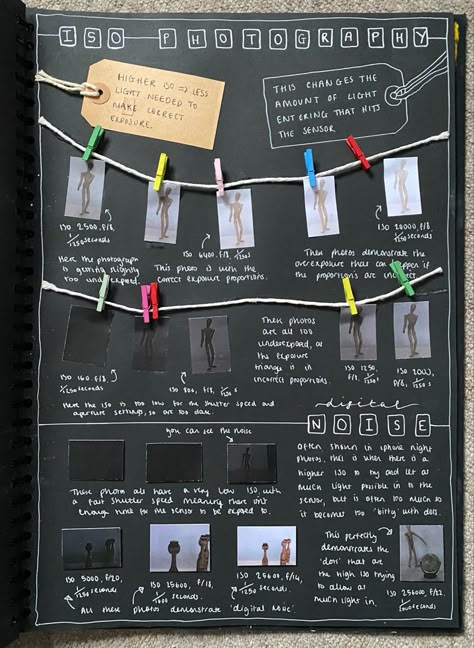 ISO PHOTOGRAPHY
HIGHER ISO => LESS
LIGHT NEEDED TO
MAKE CORRECT
EXPOSURE.
THIS CHANGES THE
AMOUNT OF LIGHT
ENTERING THAT HITS
THE SENSOR
ISO 2500, F/8,
1/1250 seconds
Here the photograph
is getting slightly
too underexposed.
ISO 6400, F/8,
This photo is with the
correct exposure proportions.
ISO 20000, F/8,
1/1250 seconds
These photos demonstrate the
overexposure that can happen if
the proportions are incorrect
ISO 160, F/8,
1/1250 seconds
ISO 800, F/8,
Here the ISO is too low for the shutter speed and
aperture settings, so are too dark.
These photos
are all too
underexposed, as
the exposure
triangle is in
incorrect proportions.
ISO 1250,
F/8,
ISO 2000,
F/8,
digital
NOISE
you can see the noise
These photos all have a very low ISO, with
a fast shutter speed meaning there isn't
enough for the sensor to be exposed to.
Often shown in iphone night
photos, this is when there is a
higher ISO to try and let as
much light possible in to the
sensor, but is often too much so
it becomes too 'bitty' with dots.
ISO 5000, F/20,
1/1250 seconds.
ISO 25600, F/18,
seconds.
ISO 25600, F/14,
1/1250 seconds.
All these photos demonstrate 'digital noise'.
This perfectly
demonstrates the
'dots' that are
the high ISO trying
to allow as
much light in.
ISO 256000, F/22,
seconds